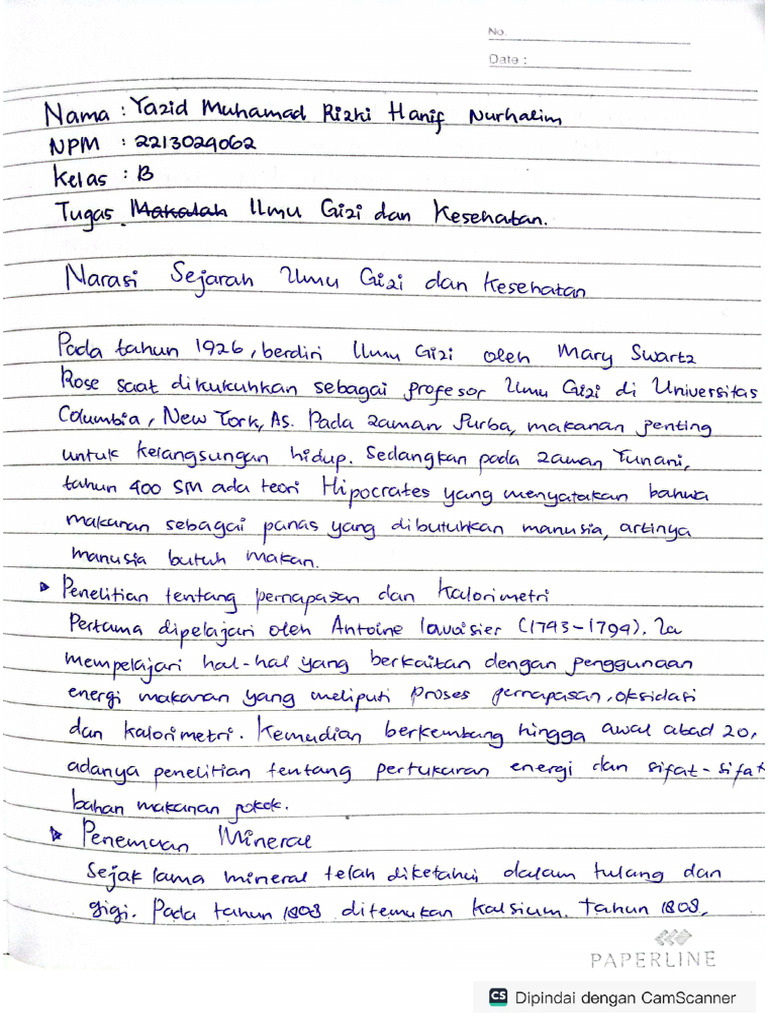 No.
Date :
Nama : Yazid Muhamad Rizki Hanif Nurhalim
NPM : 2213029062
Kelas : B
Tugas Makalah Ilmu Gizi dan Kesehatan.
Narasi Sejarah Ilmu Gizi dan Kesehatan
Pada tahun 1926, berdiri Ilmu Gizi oleh Mary Swartz
Rose saat dikukuhkan sebagai profesor Ilmu Gizi di Universitas
Columbia, New York, As. Pada zaman Purba, makanan penting
untuk kelangsungan hidup. Sedangkan pada zaman Yunani,
tahun 400 SM ada teori Hipocrates yang menyatakan bahwa
makanan sebagai panas yang dibutuhkan manusia, artinya
manusia butuh makan.
Penelitian tentang pernapasan dan Kalorimetri
Pertama dipelajari oleh Antoine lavoisier (1743-1794). Ia
mempelajari hal-hal yang berkaitan dengan penggunaan
energi makanan yang meliputi proses pernapasan, oksidasi
dan kalorimetri. Kemudian berkembang hingga awal abad 20,
adanya penelitian tentang pertukaran energi dan sifat-sifat
bahan makanan pokok.
Penemuan Mineral
Sejak lama mineral telah diketahui dalam tulang dan
gigi. Pada tahun 1808 ditemukan kalsium. Tahun 1808,
PAPERLINE
CS Dipindai dengan CamScanner